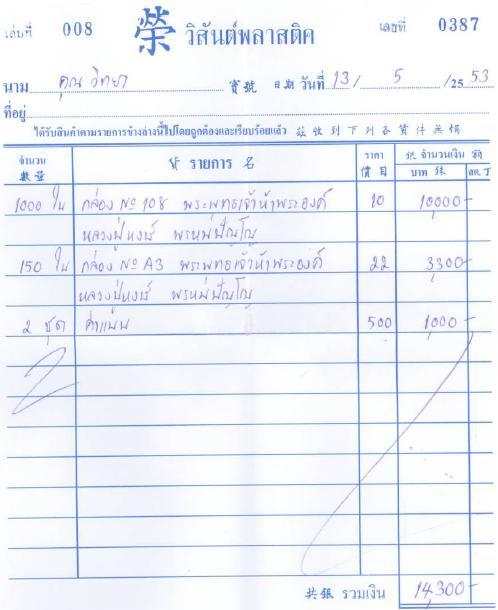 เล่มที่ 008 榮 วิสันต์พลาสติค เลขที่ 0387
นาม คุณ วิทยา 寶號 日期 วันที่ 13 / 5 /25 53
ที่อยู่
ได้รับสินค้าตามรายการข้างล่างนี้ไปโดยถูกต้องและเรียบร้อยแล้ว 茲收到下列各貨件無悞
จำนวน 數量 貨 รายการ 名 ราคา 價目 銀 จำนวนเงิน 額 บาท 銖 สต. 丁
1000 ใบ กล่อง № 108 พระพุทธเจ้าห้าพระองค์ 10 10000-
หลวงปู่หงษ์ พรหมปัญโญ
150 ใบ กล่อง № A3 พระพุทธเจ้าห้าพระองค์ 22 3300-
หลวงปู่หงษ์ พรหมปัญโญ
2 ชุด ค่าแม่น 500 1000-
共銀 รวมเงิน 14,300-